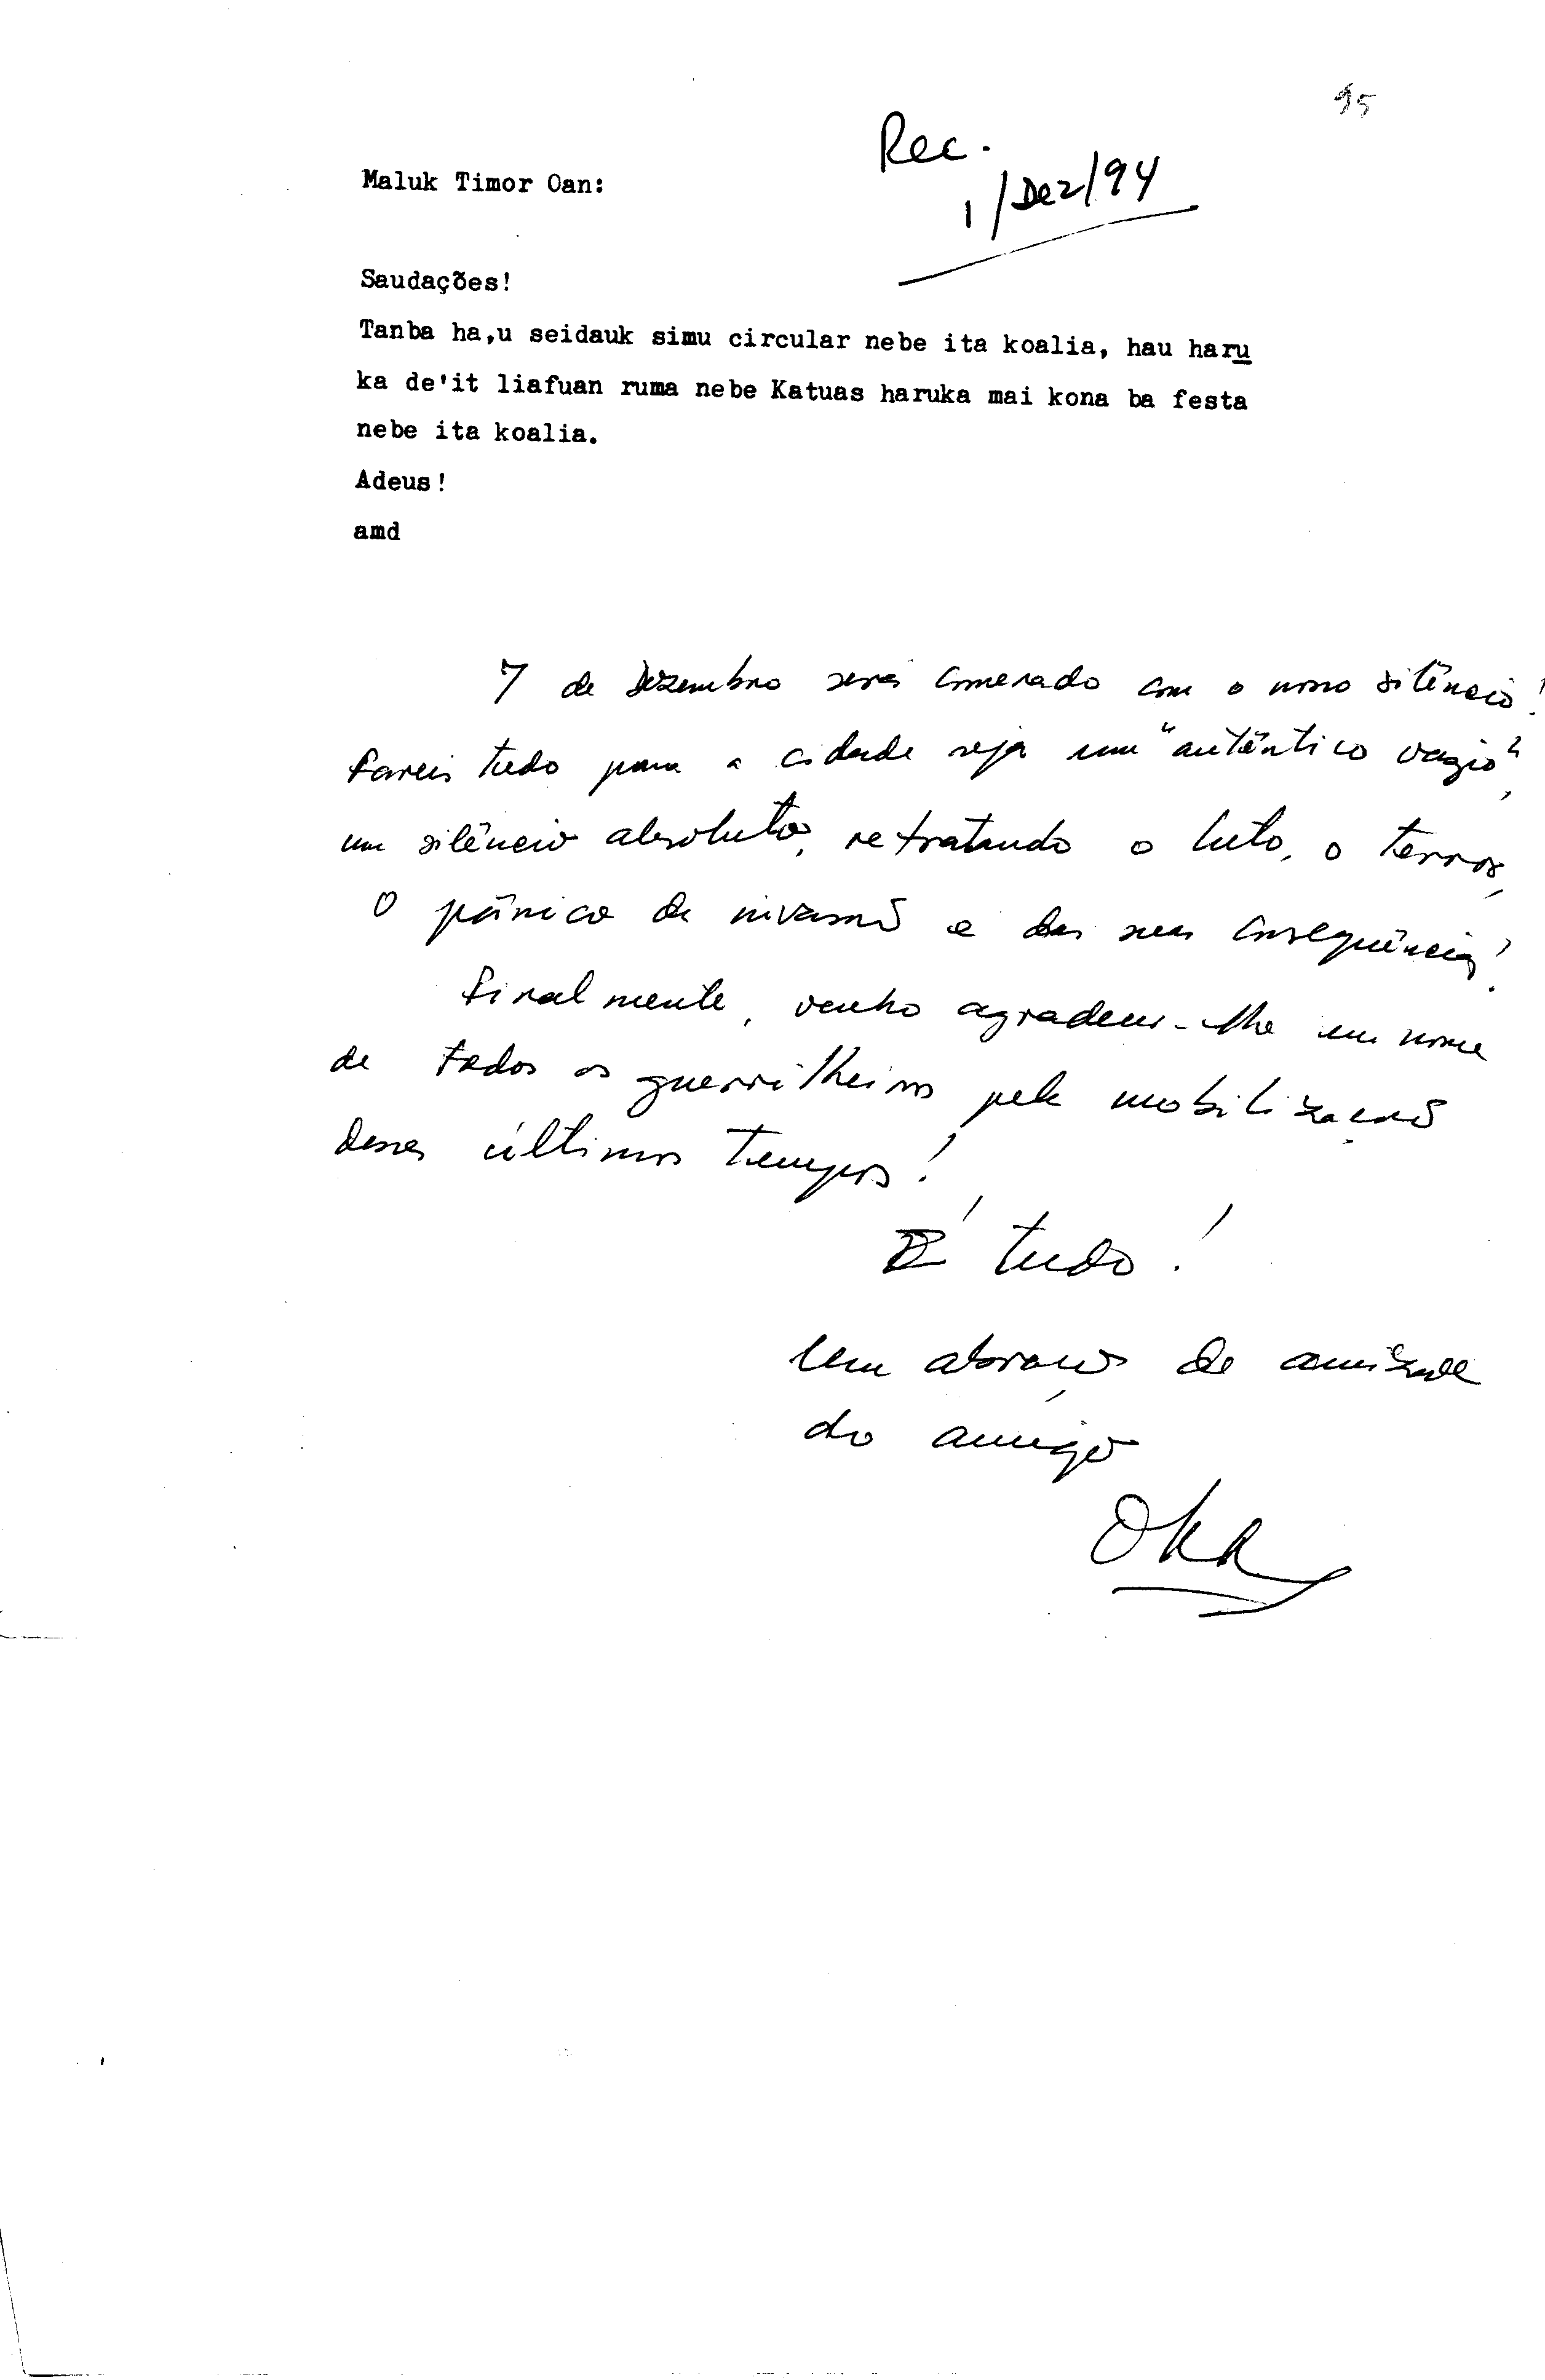 95
Rec.
1/Dez/94
Maluk Timor Oan:
Saudações!
Tanba ha,u seidauk simu circular nebe ita koalia, hau haru
ka de'it liafuan ruma nebe Katuas haruka mai kona ba festa
nebe ita koalia.
Adeus!
amd
7 de Dezembro será comerado com o nosso silêncio!
Fareis tudo para a cidade seja um "autêntico vazio",
um silêncio absoluto, retratando o luto, o terror,
o pânico da invasão e das suas consequências!
Finalmente, venho agradecer-lhe em nome
de todos os guerrilheiros pela mobilização
desses últimos tempos!
É tudo!
Um abraço de amizade
do amigo